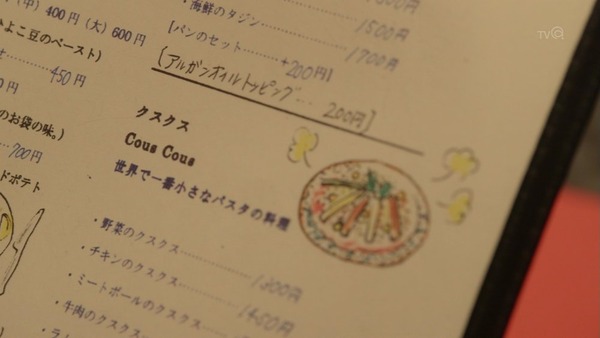 (中) 400円 (大) 600円
ひよこ豆のペースト)
450円
のお袋の味。)
700円
ドポテト
・海鮮のタジン
1500円
1700円
[パンのセット ……… +200円]
(アルガンオイルトッピング… 200円]
クスクス
Cous Cous
世界で一番小さなパスタの料理
・野菜のクスクス………… 1300円
・チキンのクスクス………… 1450円
・ミートボールのクスクス…………
・牛肉のクスクス…………
TVQ